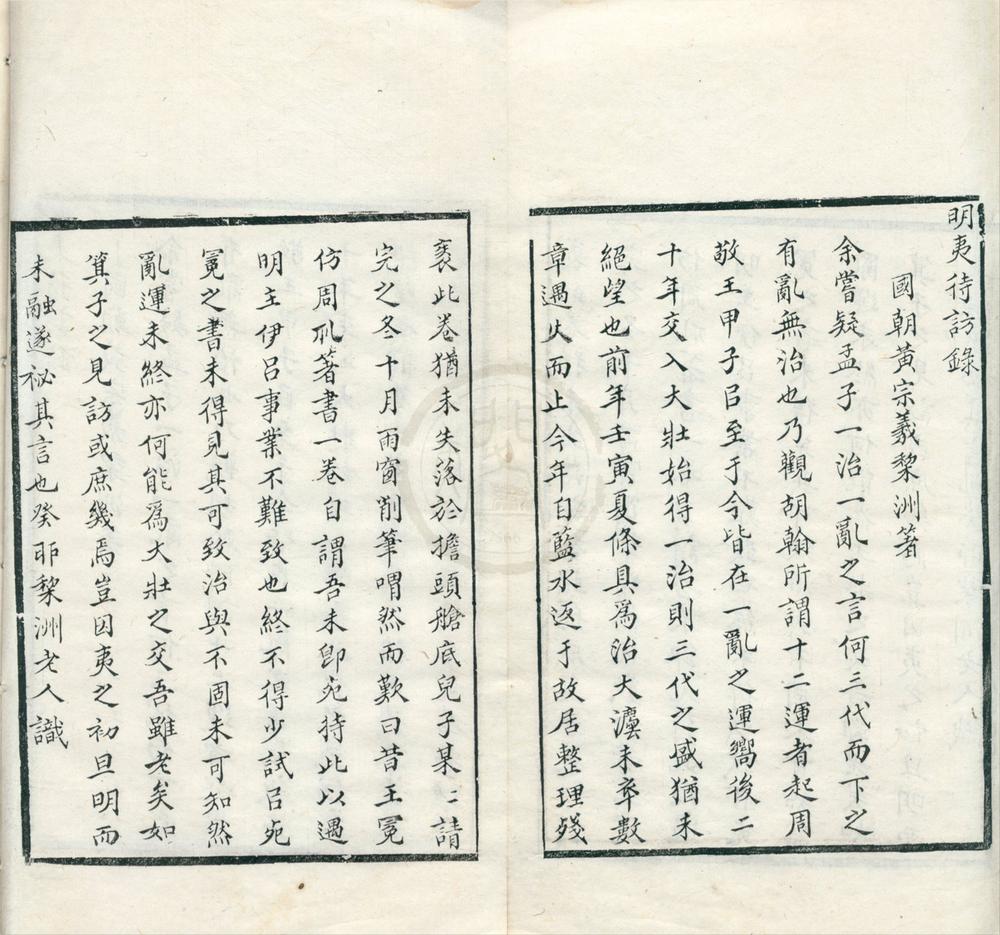 明夷待訪錄
國朝黃宗羲黎洲著
余嘗疑孟子一治一亂之言何三代而下之
有亂無治也乃觀胡翰所謂十二運者起周
敬王甲子㠯至于今皆在一亂之運嚮後二
十年交入大壯始得一治則三代之盛猶未
絕望也前年壬寅夏條具為治大灋未卒數
章遇火而止今年自藍水返于故居整理殘
袠此卷猶未失落於擔頭艙底兒子某〻請
完之冬十月雨窗削筆喟然而歎曰昔王冕
仿周礼著書一卷自謂吾未卽死持此以遇
明主伊呂事業不難致也終不得少試㠯死
冕之書未得見其可致治與不固未可知然
亂運未終亦何能爲大壯之交吾雖老矣如
箕子之見訪或庶幾焉豈因夷之初旦明而
未融遂祕其言也癸卯黎洲老人識